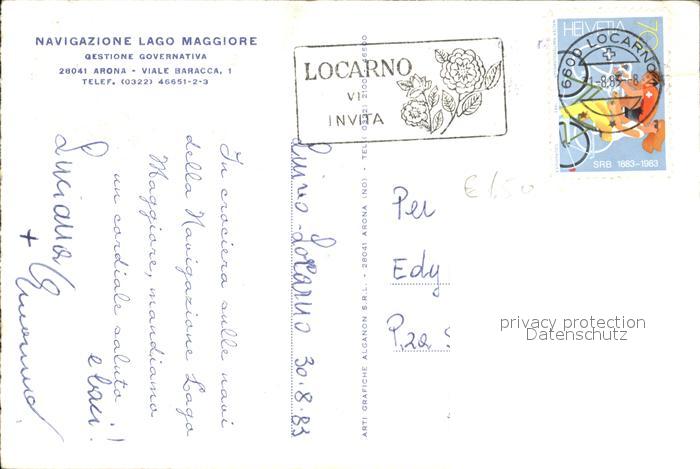 NAVIGAZIONE LAGO MAGGIORE
GESTIONE GOVERNATIVA
28041 ARONA - VIALE BARACCA, 1
TELEF. (0322) 46651-2-3
In crociera sulle navi
della Navigazione Lago
Maggiore, mandiamo
un cordiale saluto
e baci!!
Luciana
+
Luino - Locarno 30.8.83
ARTI GRAFICHE ALGANON S.R.L. - 28041 ARONA (NO) -
LOCARNO
VI
INVITA
HELVETIA
6600 LOCARNO
SRB 1883-1983
€ 1,50
Per
Edy
P.za
privacy protection
Datenschutz